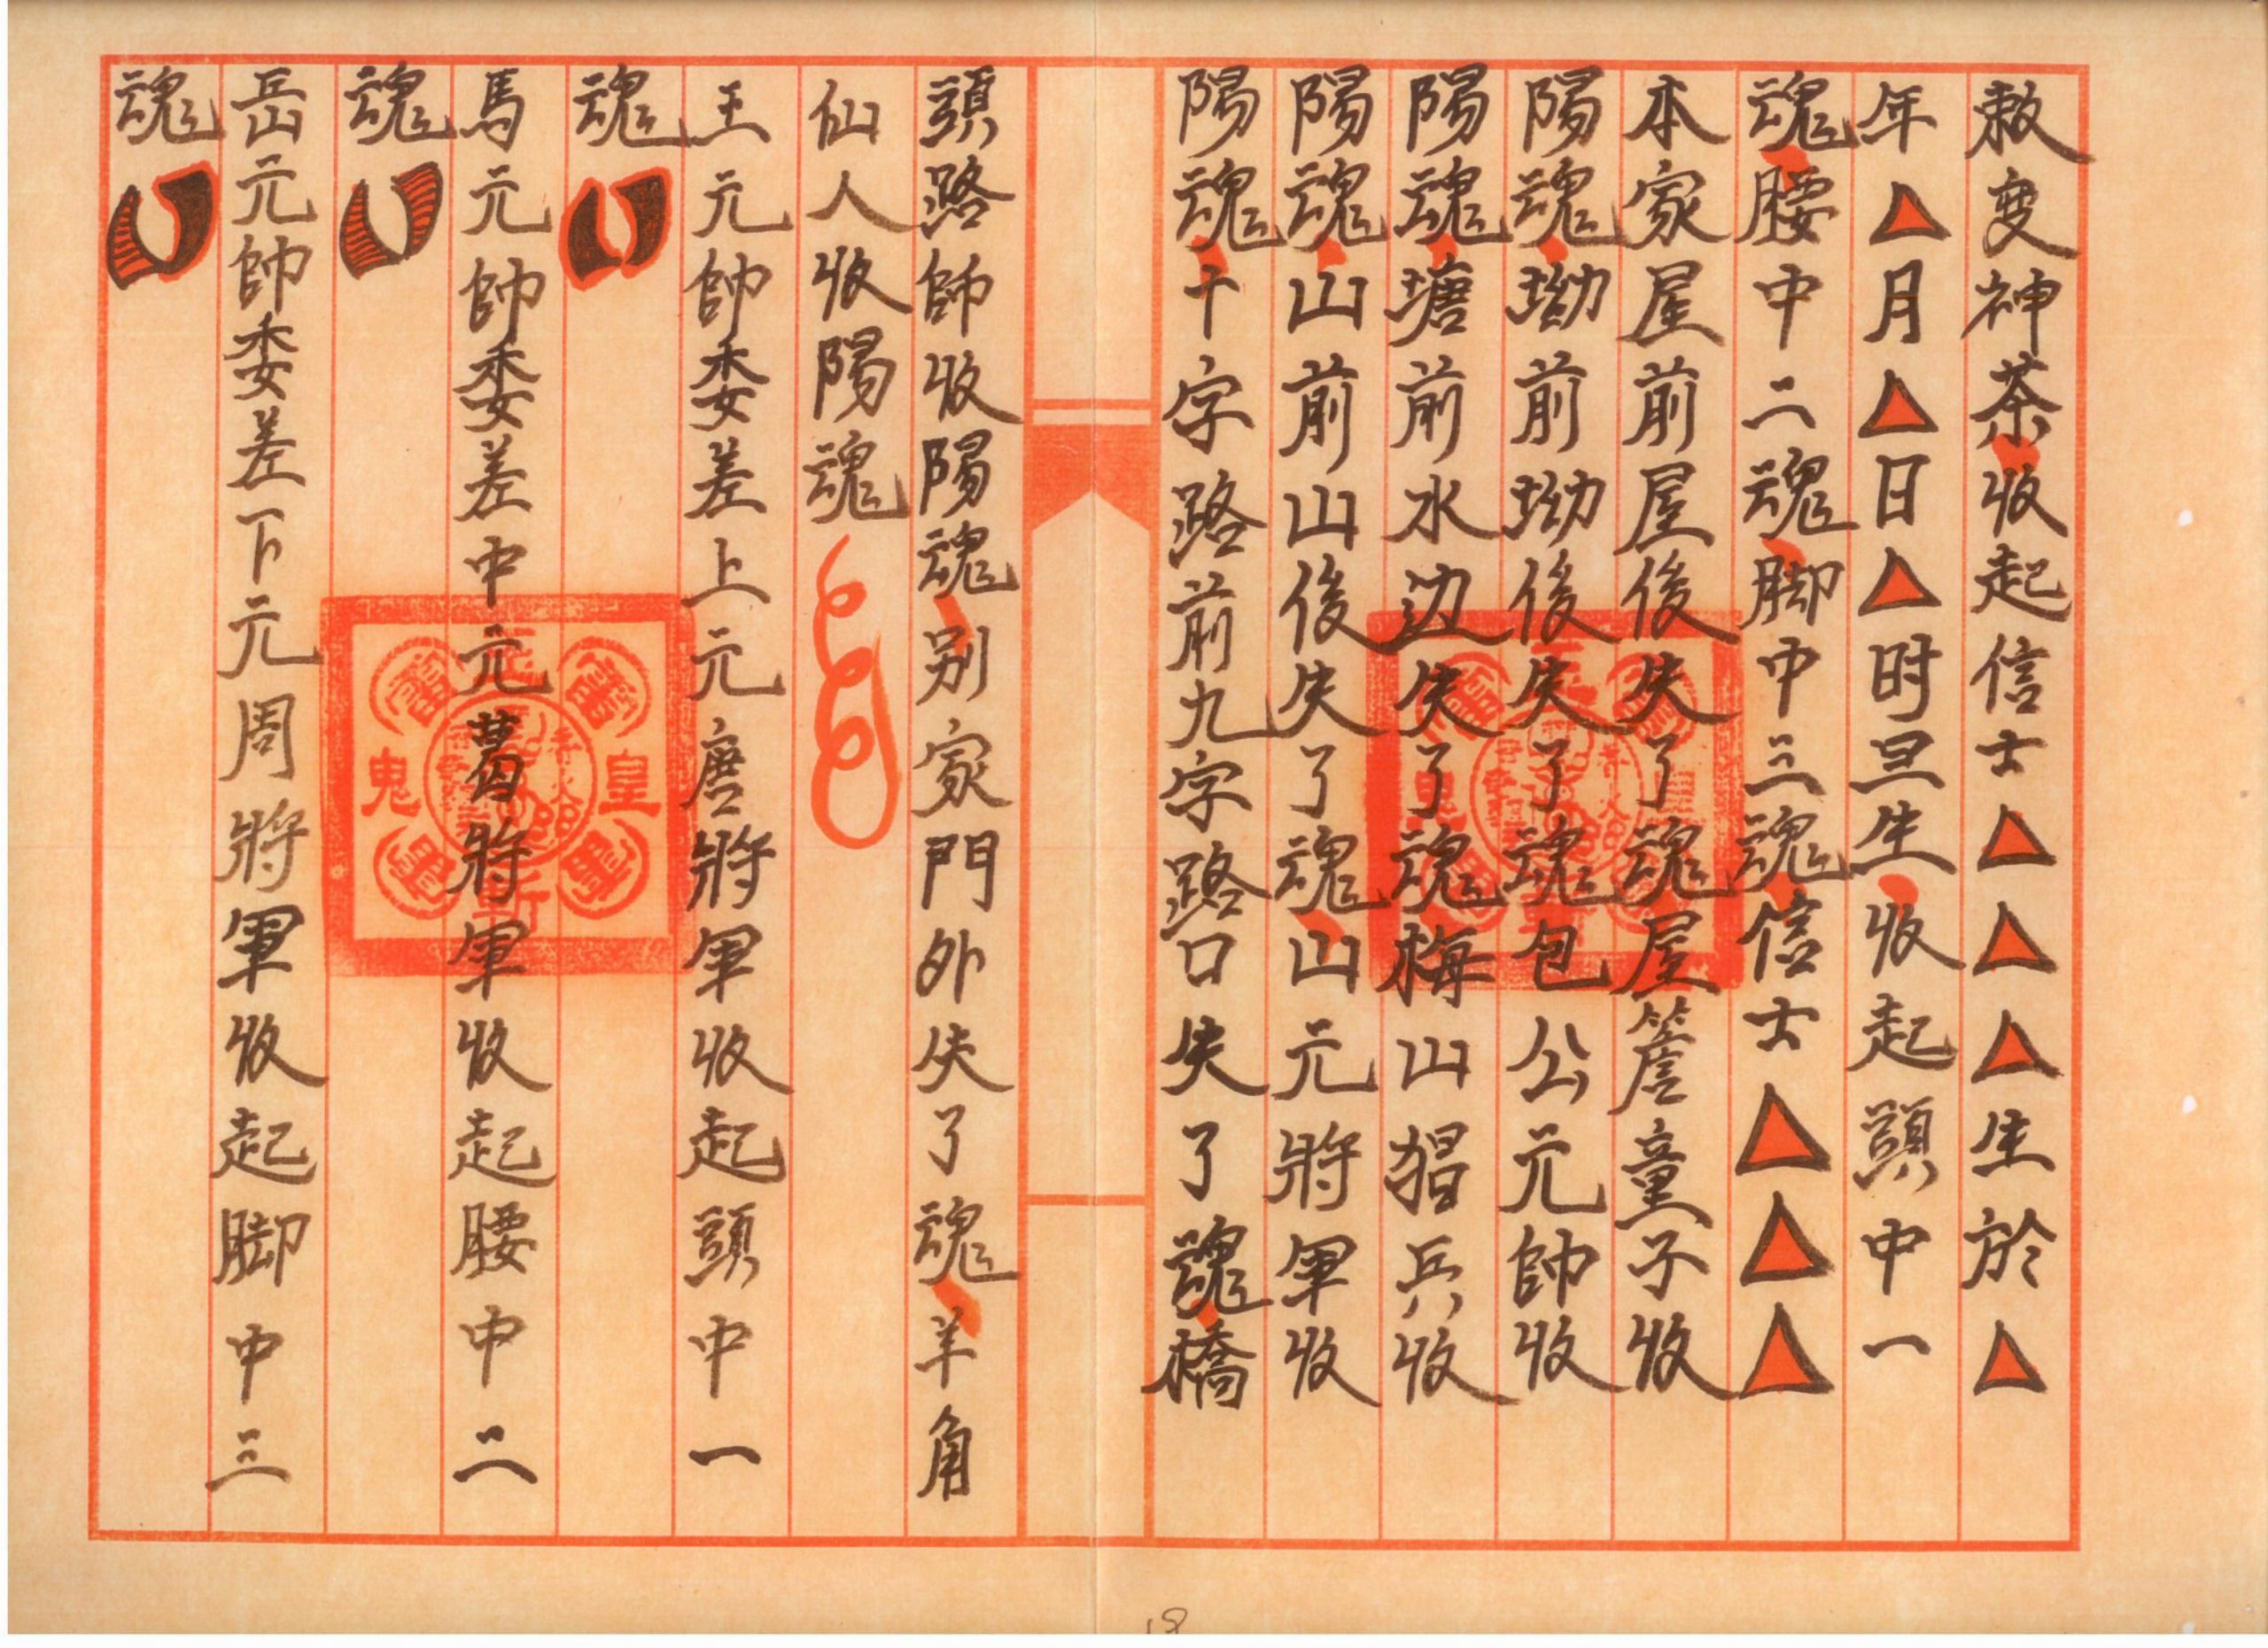 敕变神茶收起信士△△△生於△
年△月△日△时旦生收起頭中一
魂腰中二魂脚中三魂信士△△△
本家屋前屋後失了魂屋簷童子收
陽魂坳前坳後失了魂包公元帥收
陽魂塘前水边失了魂梅山猖兵收
陽魂山前山後失了魂山元將軍收
陽魂十字路前九字路口失了魂橋
頭路師收陽魂别家門外失了魂羊角
仙人收陽魂
王元帥委差上元唐將軍收起頭中一
魂
馬元帥委差中元葛將軍收起腰中二
魂
岳元帥委差下元周將軍收起脚中三
魂
18